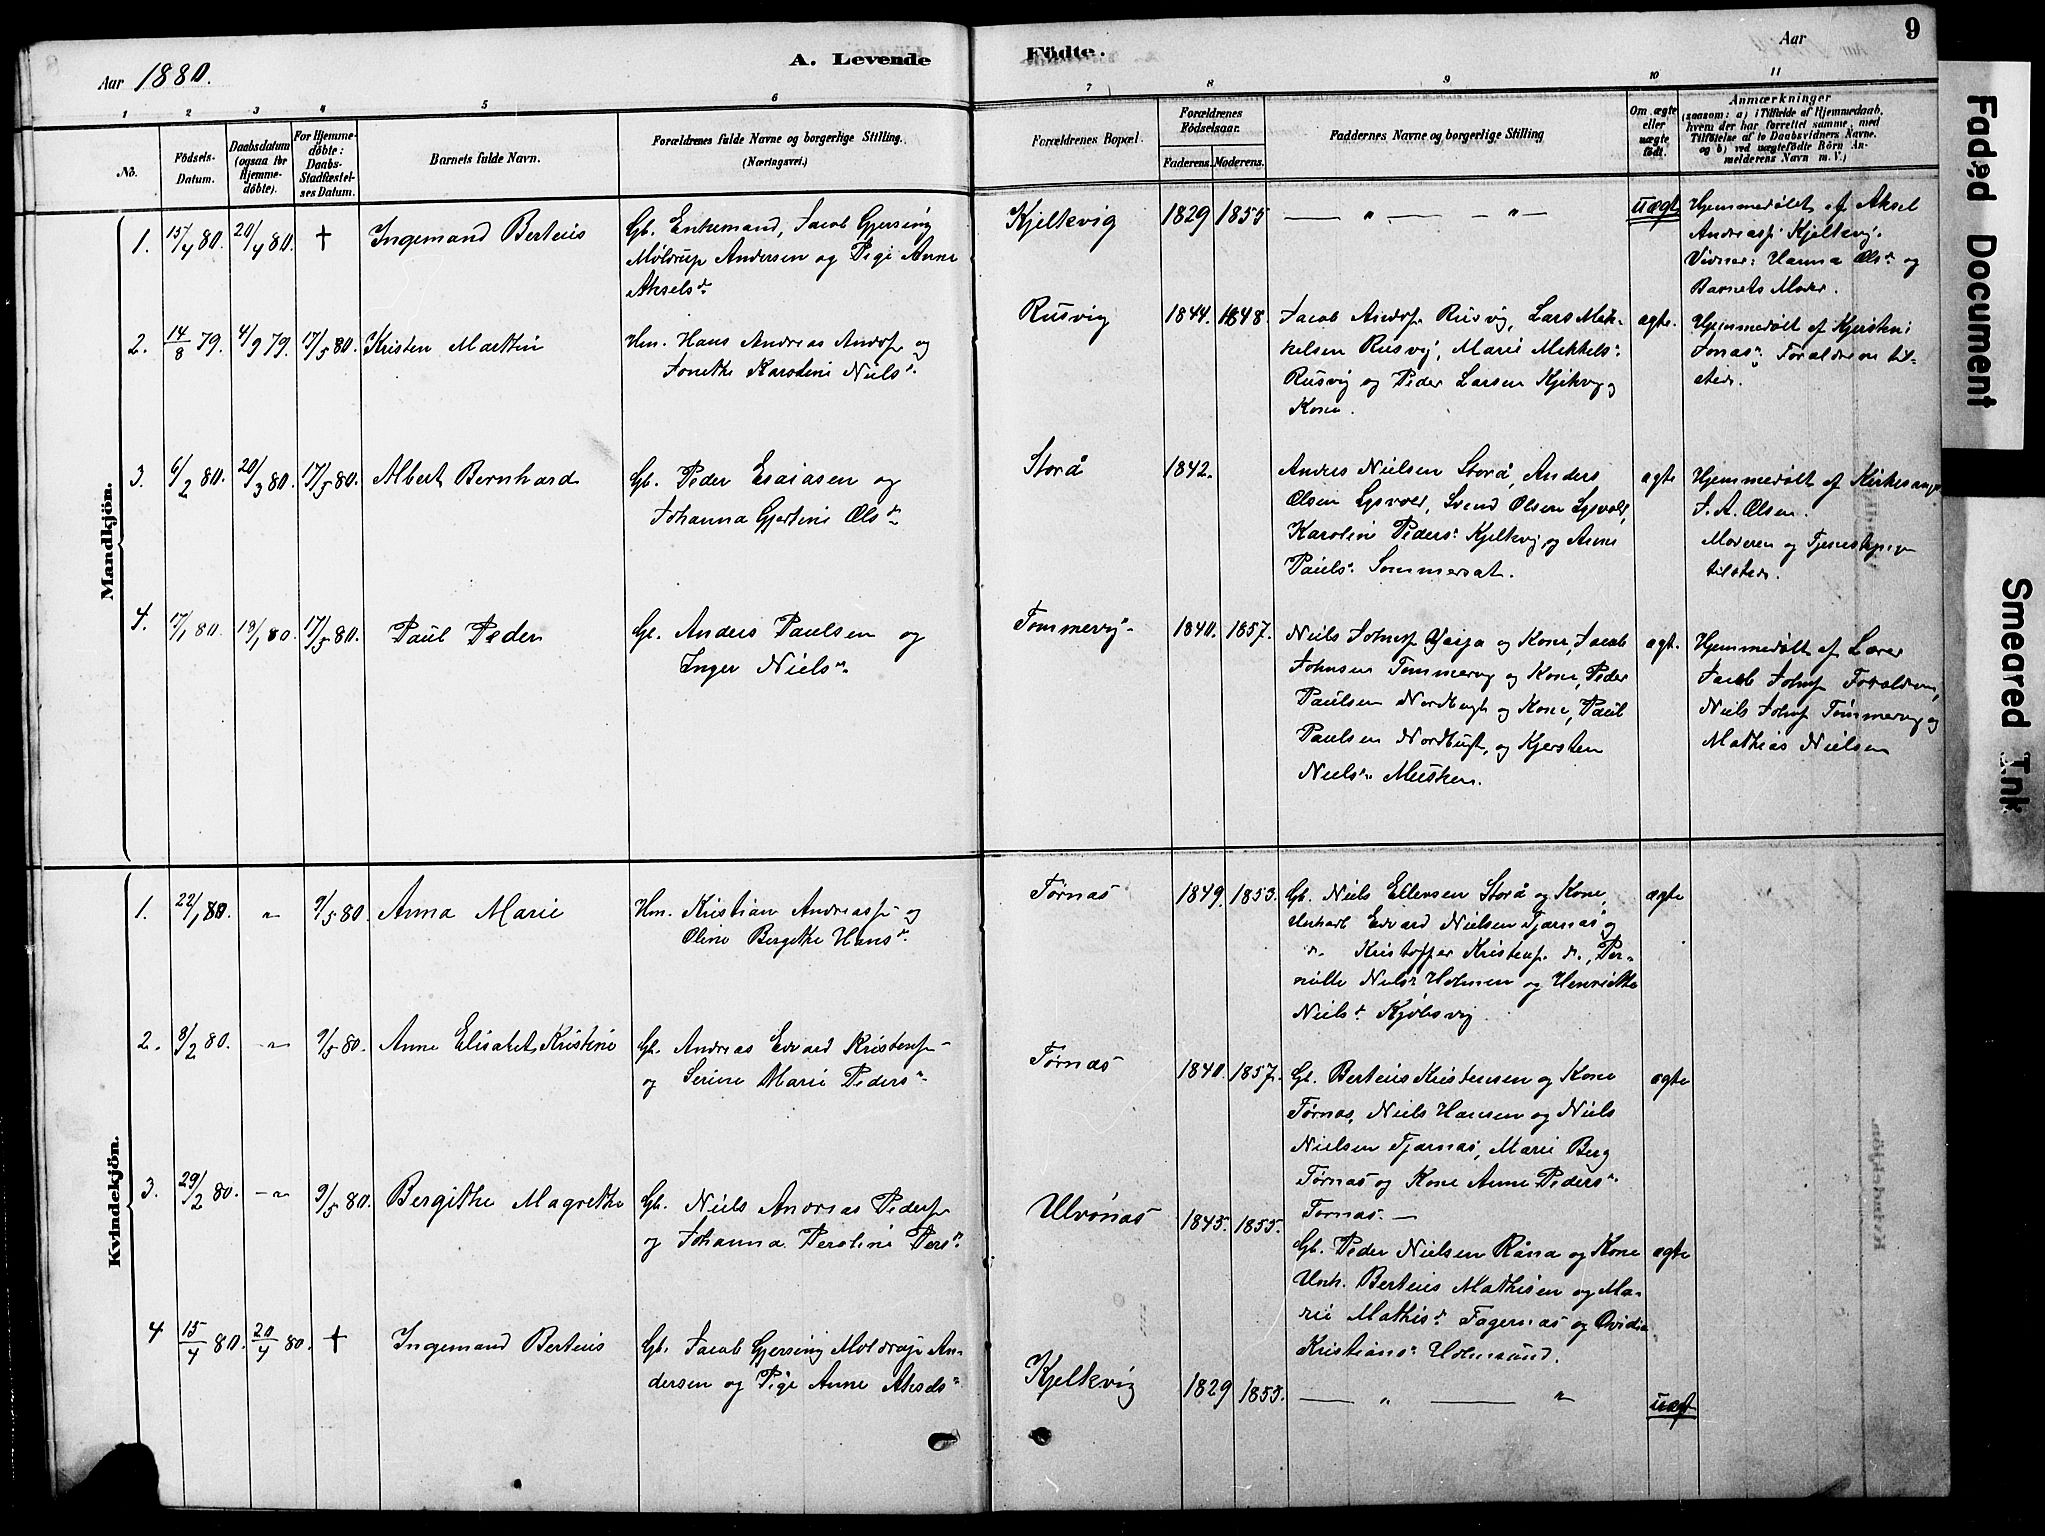 9
Aar 1880.
A. Levende
Födte.
Aar
1 2 3 4 5 6 7 8 9 10 11
No.
Födsels-
Datum.
Daabsdatum
(ogsaa for
Hjemme-
döbte).
For Hjemme-
döbte:
Daabs-
Stadfæstel-
ses Datum.
Barnets fulde Navn.
Forældrenes fulde Navne og borgerlige Stilling.
(Næringsvei.)
Forældrenes Bopæl.
Forældrenes
Födselsaar.
Faderens. Moderens.
Faddernes Navne og borgerlige Stilling
Om ægte
eller
uægte
født.
Anmærkninger
(saasom: a) i Tilfælde af Hjemmedaab,
hvem der har forrettet samme, med
Tilföielse af to Daabsvidners Navne.
og b) ved uægtefödte Börn An-
melderens Navn m. V.)
Mandkjön.
1. 15/4 80. 20/4 80. † Ingemand Berteus
Gb. Enkemand, Jacob Gjersing
Møldrup Andersen og Pige Anne
Akselsd.
Kjelkvig 1829 1855 — " — — " — uægt
Hjemmedøbt af Aksel
Andreass. Kjelkvig.
Vidner: Hanna Olsd. og
Barnets Moder.
2. 14/8 79. 4/9 79. 17/5 80. Kristen Martin
Hm. Hans Andreas Andrs. og
Jonette Karoline Nielsd.
Rusvig 1844. 1848.
Jacob Andrs. Rusvig, Lars Mik-
kelsen Rusvig, Marie Mikkels.
Rusvig og Peder Larsen Kjelkvig
Kone.
ægte.
Hjemmedøbt af Kjersten
Jonasd. Forældrene til-
stede.
3. 6/2 80. 20/3 80. 17/5 80. Albert Bernhard
Gb. Peder Esaiasen og
Johanna Gjertine Olsd.
Storå 1842.
Andres Nielsen Storå, Anders
Olsen Lysvold, Svend Olsen Lysvold,
Karoline Peders. Kjelkvig og Anne
Pauls. Sommerset.
ægte
Hjemmedøbt af Kirkesanger
J. A. Olsen.
Moderen og Tjenestepige
tilstede.
4. 17/1 80. 19/1 80. 17/5 80. Paul Peder
Gb. Anders Paulsen og
Inger Nielsd.
Tømmervig 1840. 1857.
Niels Johns. og Kone, Jacob
Johnsen Tømmervig og Kone, Peder
Paulsen Nordbugt og Kone, Paul
Paulsen Nordbugt, og Kjersten
Nielsd. Musken.
ægt.
Hjemmedøbt af Lærer
Jacob Johns. Forældrene,
Niels Johns. Tømmervig og
Mathias Nielsen
Kvindekjön.
1. 22/1 80. " 9/5 80. Anna Marie
Hm. Kristian Andreass. og
Oline Bergitte Hansd.
Tørnæs 1849. 1853.
Gb. Niels Ellensen Storå og Kone,
Unkarl Edvard Nielsen Tjærnæs og
" Kristoffer Kristens. do., Per-
nille Nielsd. Holmen og Henriette
Nielsd. Kjøbsvig.
ægte
2. 8/2 80. " 9/5 80. Anne Elisabet Kristine
Gb. Andreas Edvard Kristens.
og Serine Marie Pedersd.
Tørnæs 1840. 1857.
Gb. Berteus Kristensen og Kone
Tørnæs, Niels Hansen og Niels
Nielsen Tjærnæs, Marie Berg
Tørnæs og Kone Anne Pedersd.
Tørnæs. —
ægte
3. 29/2 80. " 9/5 80. Bergithe Magrethe
Gb. Niels Andreas Peders.
og Johanna Peroline Persd.
Ulvønæs 1845. 1855.
Gb. Peder Nielsen Råna og Kone
Unk. Berteus Mathisen og Ma-
rie Mathisd. Fagernæs og Ovidia
Kristiansd. Holmsund.
ægte
4 15/4 80. 20/4 80. † Ingemand Berteus
Gb. Jacob Gjersing Moldrup An-
dersen og Pige Anne Akselsd.
Kjelkvig 1829 1853. — " — " uægt
Faded Document
Smeared Ink